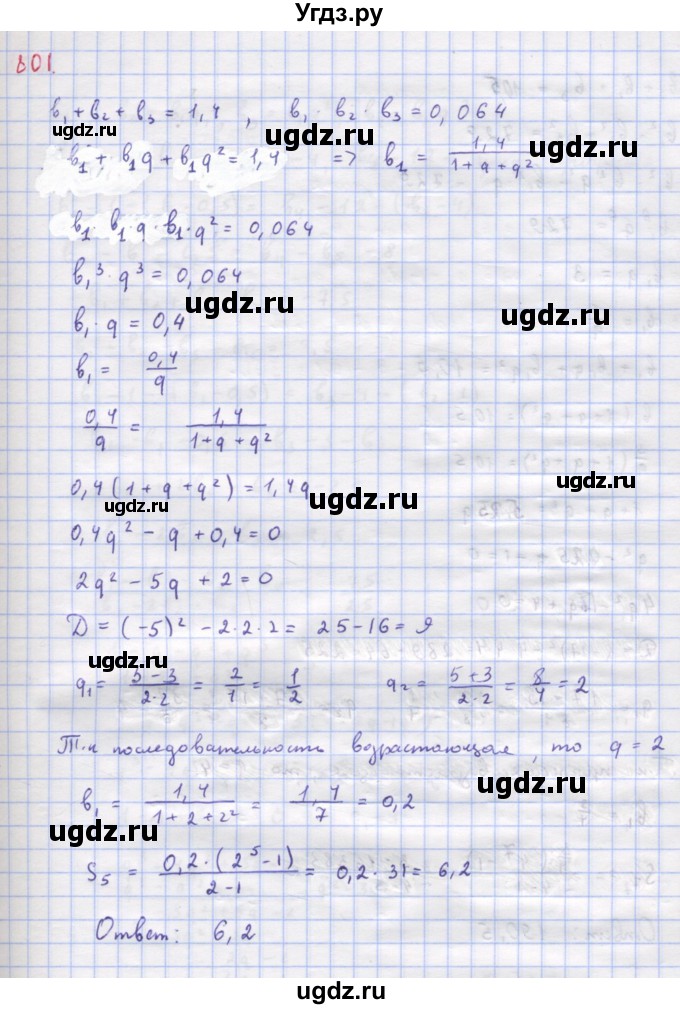 Угдз.ру
801.
b₁ + b₂ + b₃ = 1,4 , b₁ · b₂ · b₃ = 0,064
ugdz.ru ugdz.ru
b₁ + b₁q + b₁q² = 1,4 => b₁ = 1,4 / (1+q+q²)
ugdz.ru
b₁ · b₁ · q · b₁ · q² = 0,064
b₁³ · q³ = 0,064
ugdz.ru
b₁ · q = 0,4
ugdz.ru
b₁ = 0,4 / q
0,4 / q = 1,4 / (1+q+q²)
ugdz.ru
0,4(1+q+q²) = 1,4q
ugdz.ru ugdz.ru ugdz.ru
0,4q² - q + 0,4 = 0
2q² - 5q + 2 = 0
D = (-5)² - 2·2·2 = 25-16 = 9
ugdz.ru
q₁ = (5-3) / (2·2) = 2/4 = 1/2 q₂ = (5+3) / (2·2) = 8/4 = 2
ugdz.ru
Т.к последовательность возрастающая, то q = 2
ugdz.ru
b₁ = 1,4 / (1+2+2²) = 1,4 / 7 = 0,2
ugdz.ru
S₅ = 0,2·(2⁵-1) / (2-1) = 0,2 · 31 = 6,2
ugdz.ru
Ответ: 6,2
ugdz.ru
ugdz.ru